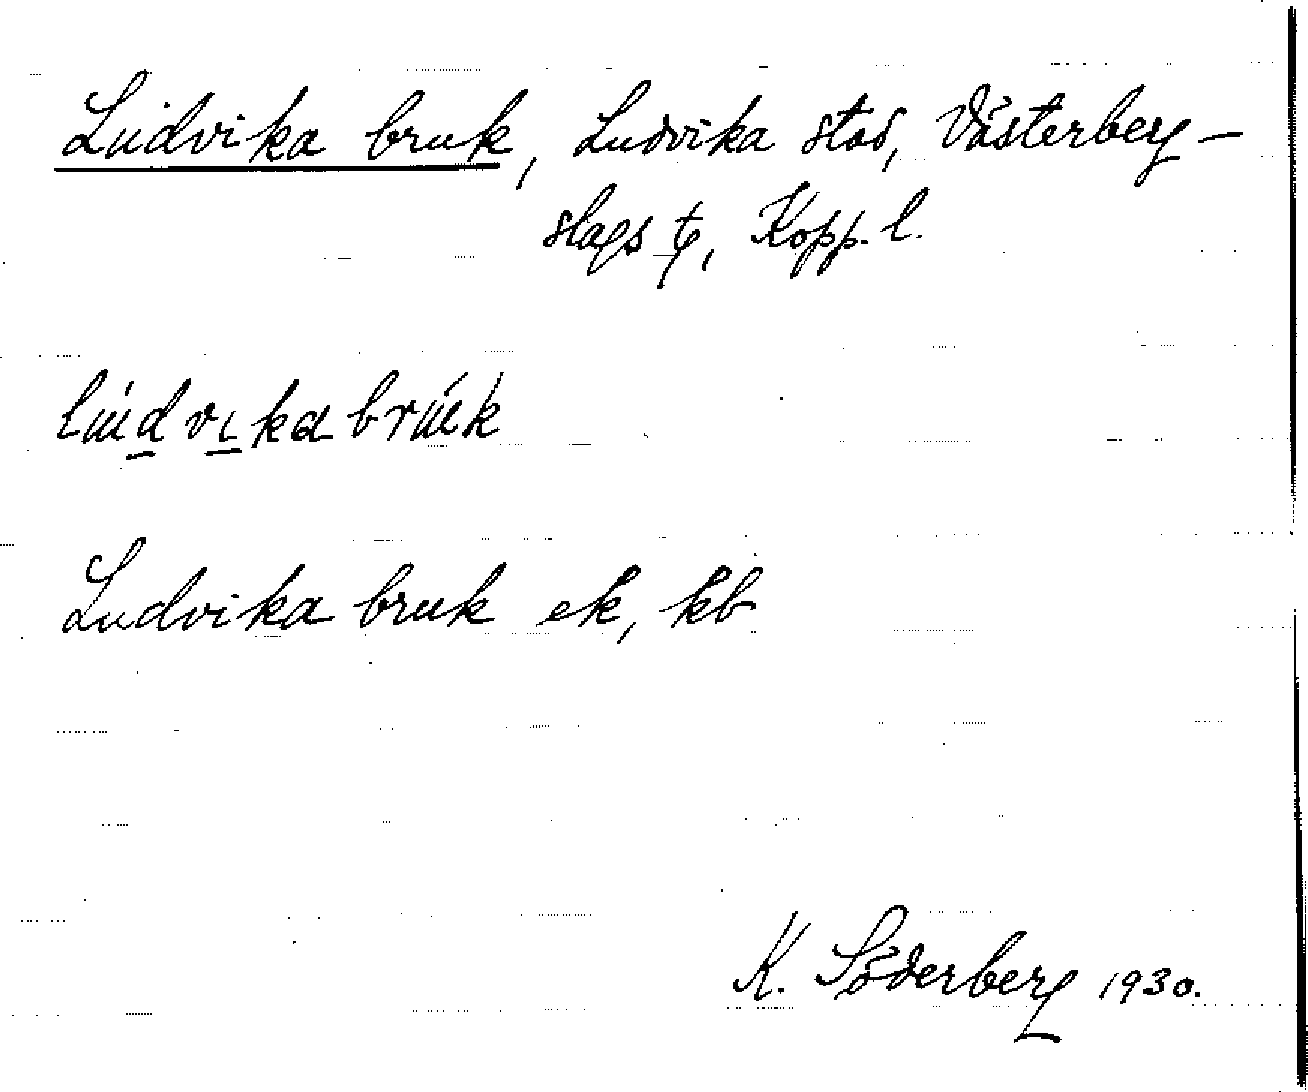 Ludvika bruk, Ludvika stad, Västerberg-
slags tg, Kopp. l.
lúdvikabrúk
Ludvika bruk ek, kb
K. Söderberg 1930.